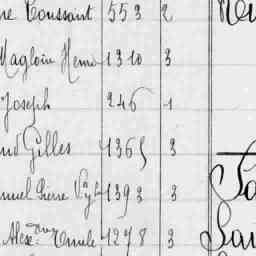 ne Toussaint 553 2
Magloire Henri 1310 3
Joseph 246 1
Gilles 1365 3
nuel Pierre 1393 3
Alex. Emile 1278 3